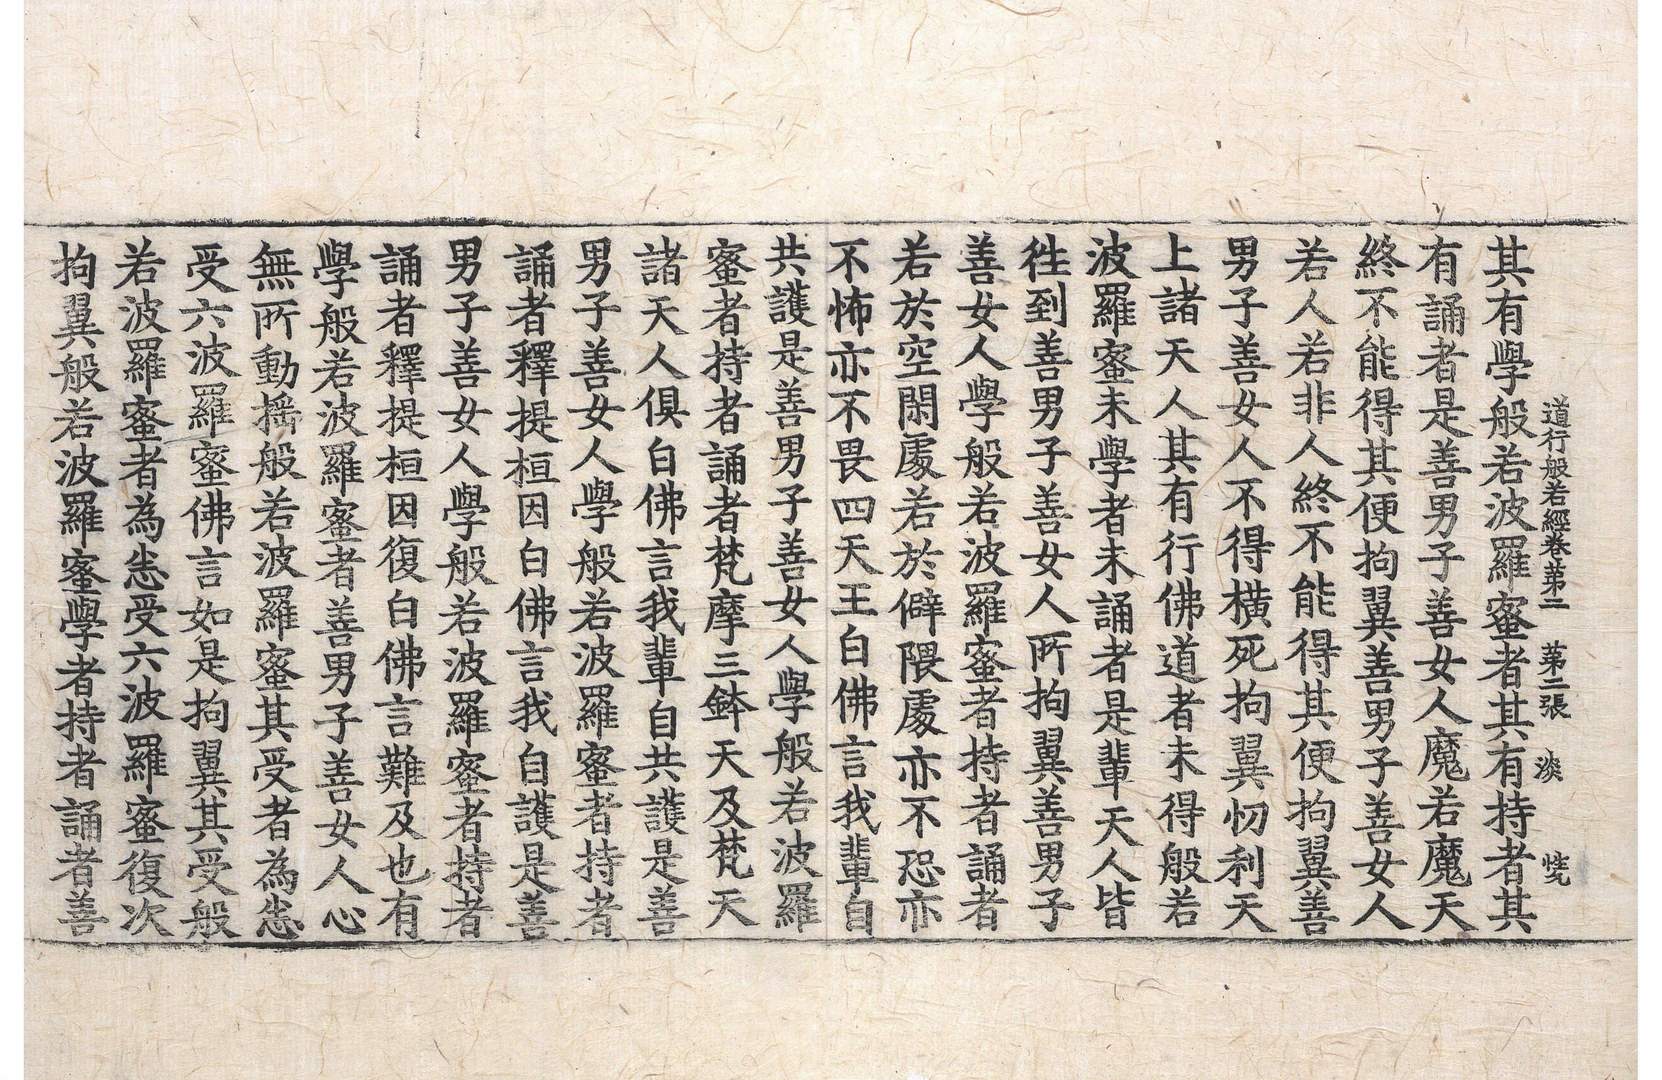 道行般若經卷第二 第二張 淡
其有學般若波羅蜜者其有持者其
有誦者是善男子善女人魔若魔天
終不能得其便拘翼善男子善女人
若人若非人終不能得其便拘翼善
男子善女人不得橫死拘翼忉利天
上諸天人其有行佛道者未得般若
波羅蜜未學者未誦者是輩天人皆
往到善男子善女人所拘翼善男子
善女人學般若波羅蜜者持者誦者
若於空閑處若於僻隈處亦不恐亦
不怖亦不畏四天王白佛言我輩自
共護是善男子善女人學般若波羅
蜜者持者誦者梵摩三鉢天及梵天
諸天人俱白佛言我輩自共護是善
男子善女人學般若波羅蜜者持者
誦者釋提桓因白佛言我自護是善
男子善女人學般若波羅蜜者持者
誦者釋提桓因復白佛言難及也有
學般若波羅蜜者善男子善女人心
無所動搖般若波羅蜜其受者為悉
受六波羅蜜佛言如是拘翼其受般
若波羅蜜者為悉受六波羅蜜復次
拘翼般若波羅蜜學者持者誦者善